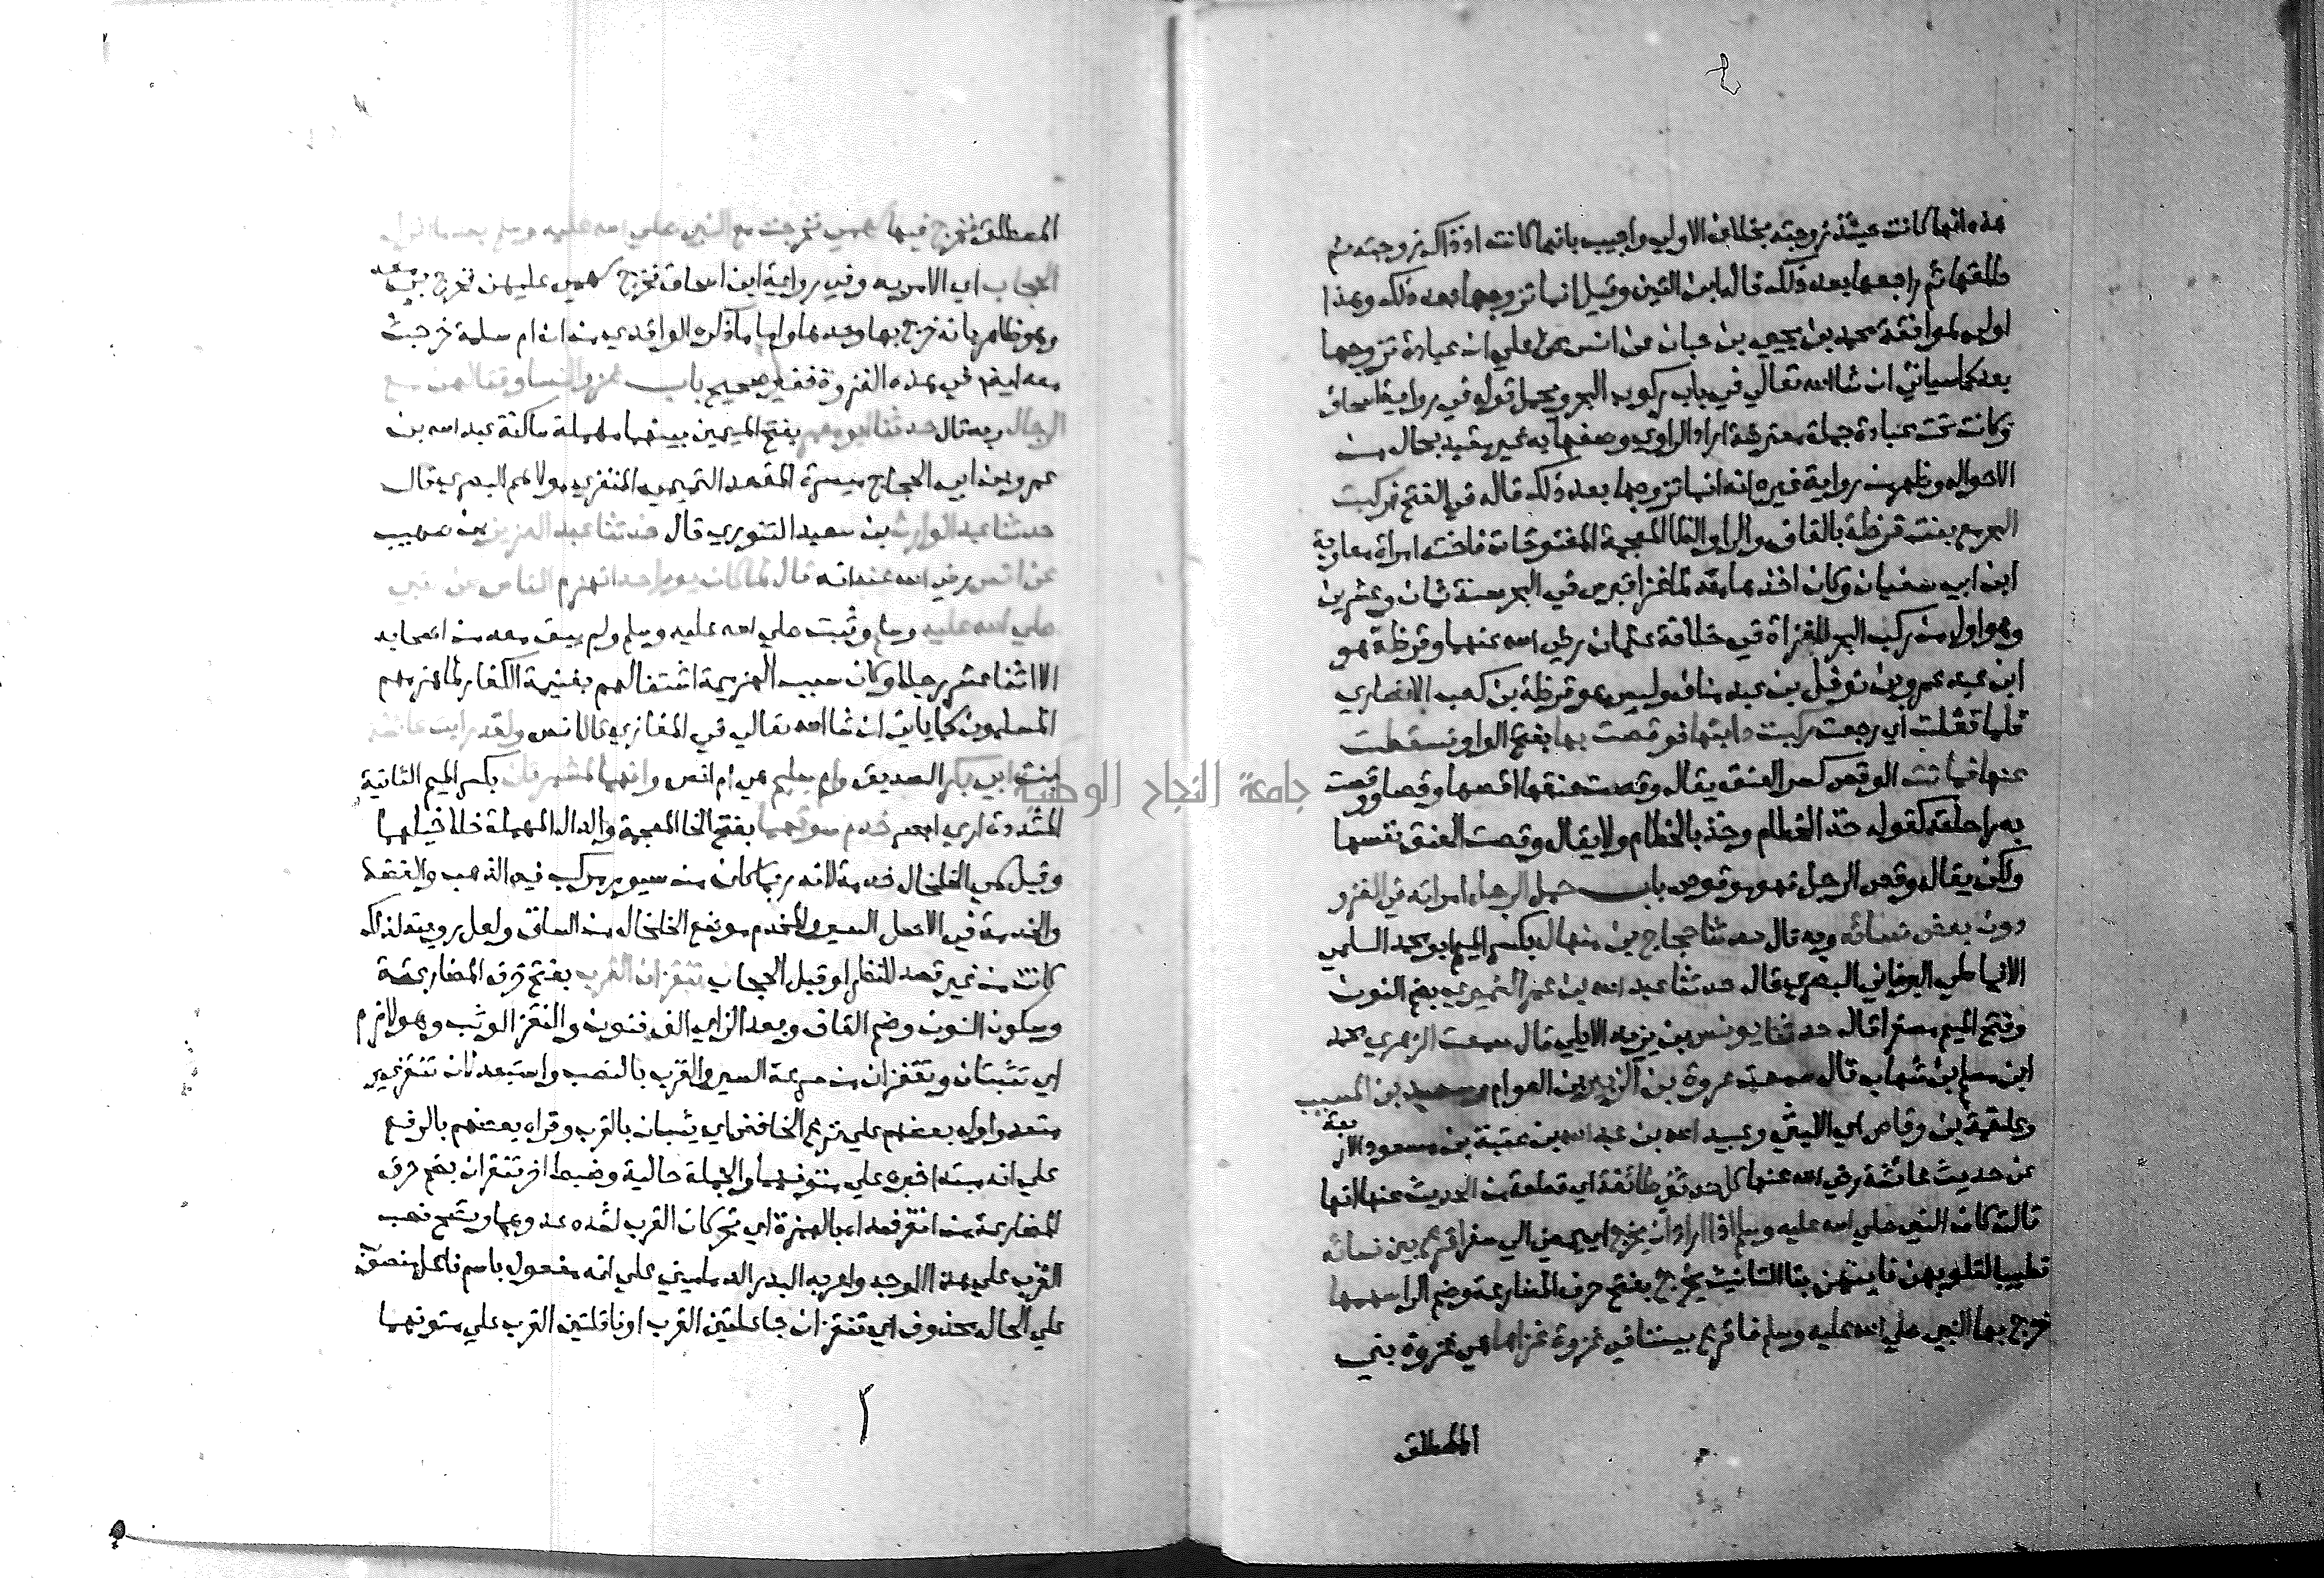 ٤
هذه انها كانت حينئذ زوجته بخلاف الاولي واجيب بانها كانت اذ ذاك زوجته ثم
طلقها ثم راجعها بعد ذلك قاله ابن التين وقيل انما تزوجها بعد ذلك وهذا
اولي لموافقة محمد بن يحيي بن حبان عن انس علي ان عبادة تزوجها
بعد كما سياتي ان شا الله تعالي في باب ركوب البحر ويحمل قوله في رواية اسحاق
وكانت تحت عبادة جملة معترضة اراد الراوي وصفها به غير مقيد بحال من
الاحوال وظهر من رواية غيره انه انما تزوجها بعد ذلك قاله في الفتح فركبت
البحر مع بنت قرظة بالقاف والرا والظا المعجمة المفتوحات فاخته امراة معاوية
ابن ابي سفيان وكان اخذها معه لما غزا قبرس في البحر سنة ثمان وعشرين
وهو اول من ركب البحر للغزاة في خلافة عثمان رضي الله عنهما وقرظة هو
ابن عبد عمرو بن نوفل بن عبد مناف وليس هو قرظة بن كعب الانصاري
فلما قفلت اي رجعت ركبت دابتها فوقصت بها بفتح الواو فسقطت
عنها فماتت الوقص كسر العنق يقال وقصت عنقها اقصها وقصا ووقصت
به راحلته كقوله خذ الخطام وخذ بالخطام ولا يقال وقصت العنق نفسها
ولكن يقال وقص الرجل فهو موقوص باب حمل الرجل امراته في الغزو
دون بعض نسائه وبه قال حدثنا حجاج بن منهال بكسر الميم ابو محمد السلمي
الانماطي البصري قال حدثنا عبد الله بن عمر النميري بضم النون
وفتح الميم مصغرا قال حدثنا يونس بن يزيد الايلي قال سمعت الزهري محمد
ابن مسلم بن شهاب قال سمعت عروة بن الزبير بن العوام وسعيد بن المسيب
وعلقمة بن وقاص الليثي وعبيد الله بن عبد الله بن عتبة بن مسعود الاربعة
عن حديث عائشة رضي الله عنها كل حدثني طائفة اي قطعة من الحديث عنها انها
قالت كان النبي صلي الله عليه وسلم اذا اراد ان يخرج الي سفر اقرع بين نسائه
تطييبا لقلوبهن فايتهن بتا التانيث يخرج بفتح حرف المضارعة وضم الرا سهمها
خرج بها النبي صلي الله عليه وسلم فاقرع بيننا في غزوة غزاها هي غزوة بني
المصطلق
المصطلق فخرج فيها سهمي فخرجت مع النبي صلي الله عليه وسلم بعد ما انزل
الحجاب اي الامر به وفي رواية ابن اسحاق فخرج سهمي عليهن فخرج بي معه
وهو ظاهر بانه خرج بها وحدها واما ما ذكره الواقدي من ان ام سلمة خرجت
معه ايضا في هذه الغزوة فضعيف باب غزو النسا وقتالهن مع
الرجال وبه قال حدثنا ابو معمر بفتح الميمين بينهما مهملة ساكنة عبد الله بن
عمرو بن ابي الحجاج ميسرة المقعد التميمي المنقري مولاهم البصري قال
حدثنا عبد الوارث بن سعيد التنوري قال حدثنا عبد العزيز بن صهيب
عن انس رضي الله عنه انه قال لما كان يوم احد انهزم الناس عن النبي
صلي الله عليه وسلم وثبت صلي الله عليه وسلم ولم يبق معه من اصحابه
الا اثنا عشر رجلا وكان سبب الهزيمة اشتغالهم بغنيمة الكفار لما هزمهم
المسلمون كما ياتي ان شا الله تعالي في المغازي قال انس ولقد رايت عائشة
بنت ابي بكر الصديق وام سليم هي ام انس وانهما لمشمرتان بكسر الميم الثانية
المشددة اري ابصر خدم سوقهما بفتح الخا المعجمة والدال المهملة خلاخيلهما
وقيل سمي الخلخال خدمة لانه ربما كان من سيور مركب فيه الذهب والفضة
والخدمة في الاصل السير والمخدم موضع الخلخال من الساق ولعل رويته لذلك
كانت من غير قصد للنظر او قبل الحجاب تنقزان القرب بفتح حرف المضارعة
وسكون النون وضم القاف وبعد الزاي الف فنون والنقز الوثب وهو لازم
اي تثبان وتقفزان من سرعة السير والقرب بالنصب واستبعد لان تنقز غير
متعد واوله بعضهم علي نزع الخافض اي يثبان بالقرب وقراه بعضهم بالرفع
علي انه مبتدا خبره علي متونهما والجملة حالية وضبط اخر تنقزان بضم حرف
المضارعة من انقز فعداه بالهمزة اي تحركان القرب لشده عدوهما ويصح نصب
القرب علي هذا الوجه واعربه البدر الدماميني علي انه مفعول باسم فاعل منصوب
علي الحال محذوف اي تنقزان جاعلتين القرب او ناقلتين القرب علي متونهما
جامعة النجاح الوطنية